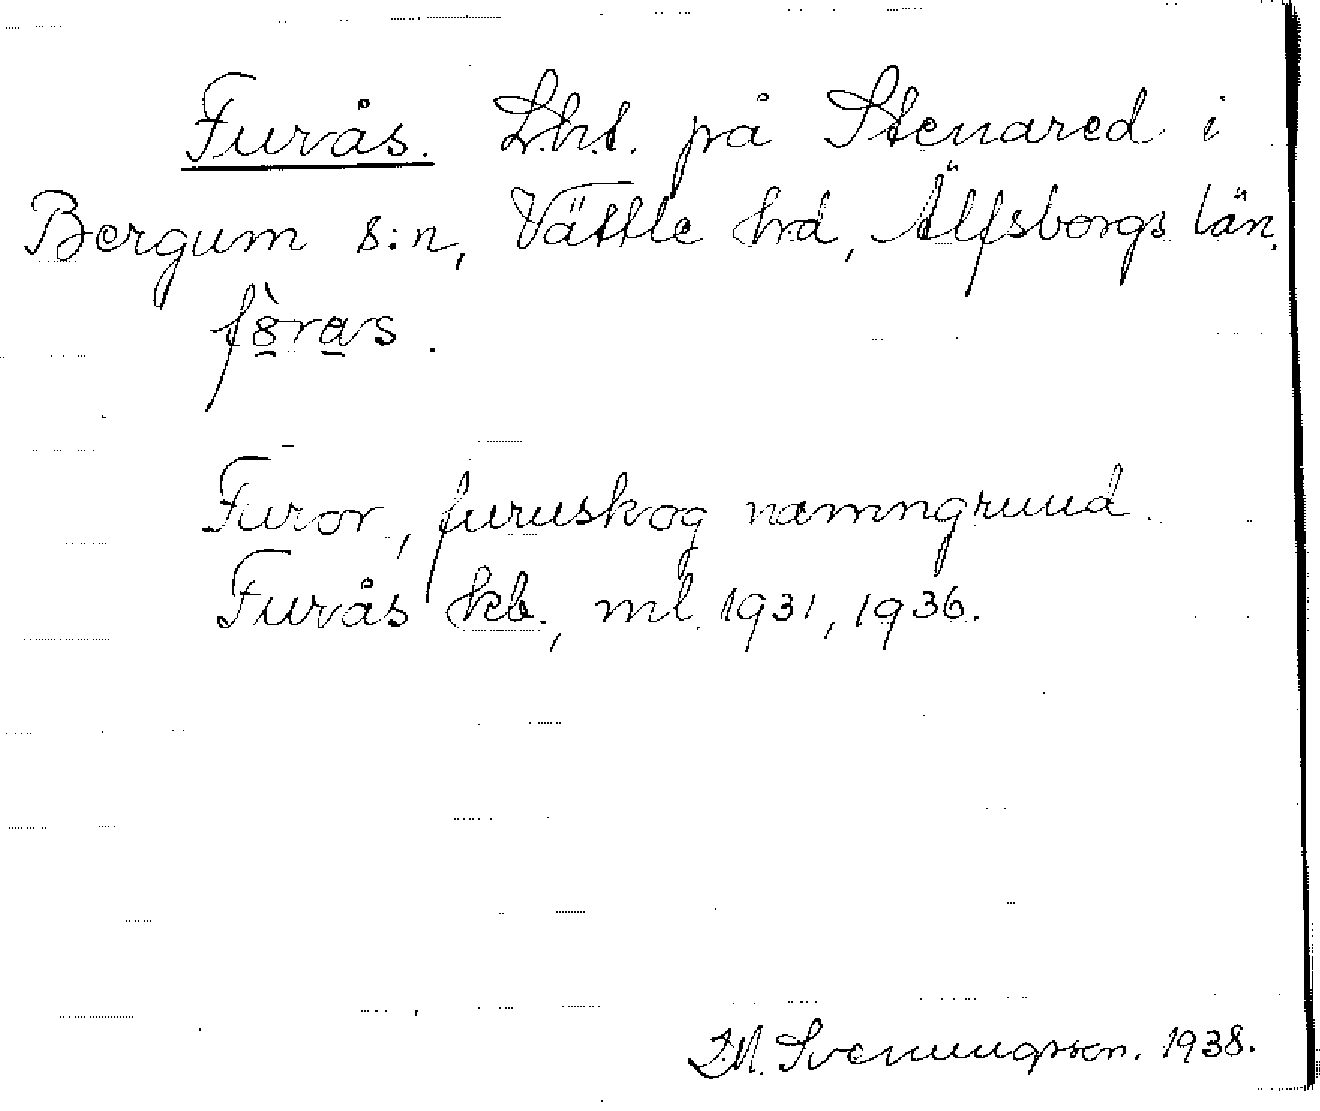 Furås. Lht. på Stenared i
Bergum s:n, Vättle hd, Älfsborgs län.
fò̱ra̱s.
Furor, furuskog namngrund.
Furås kb., ml. 1931, 1936.
Svenungsson. 1938.